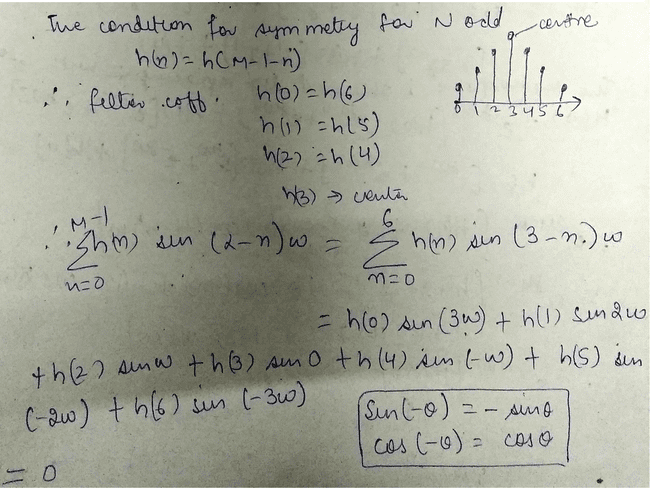 The condition for symmetry for N odd
centre
h(n) = h(M-1-n)
∴ filter coff. h(0) = h(6)
h(1) = h(5)
h(2) = h(4)
h(3) → center
0 1 2 3 4 5 6
∴ M-1 ∑ n=0 h(n) sin (α-n)ω = 6 ∑ n=0 h(n) sin (3-n)ω
= h(0) sin (3ω) + h(1) sin 2ω
+ h(2) sin ω + h(3) sin 0 + h(4) sin (-ω) + h(5) sin
(-2ω) + h(6) sin (-3ω)
Sin(-θ) = - sinθ
cos (-θ) = cosθ
= 0